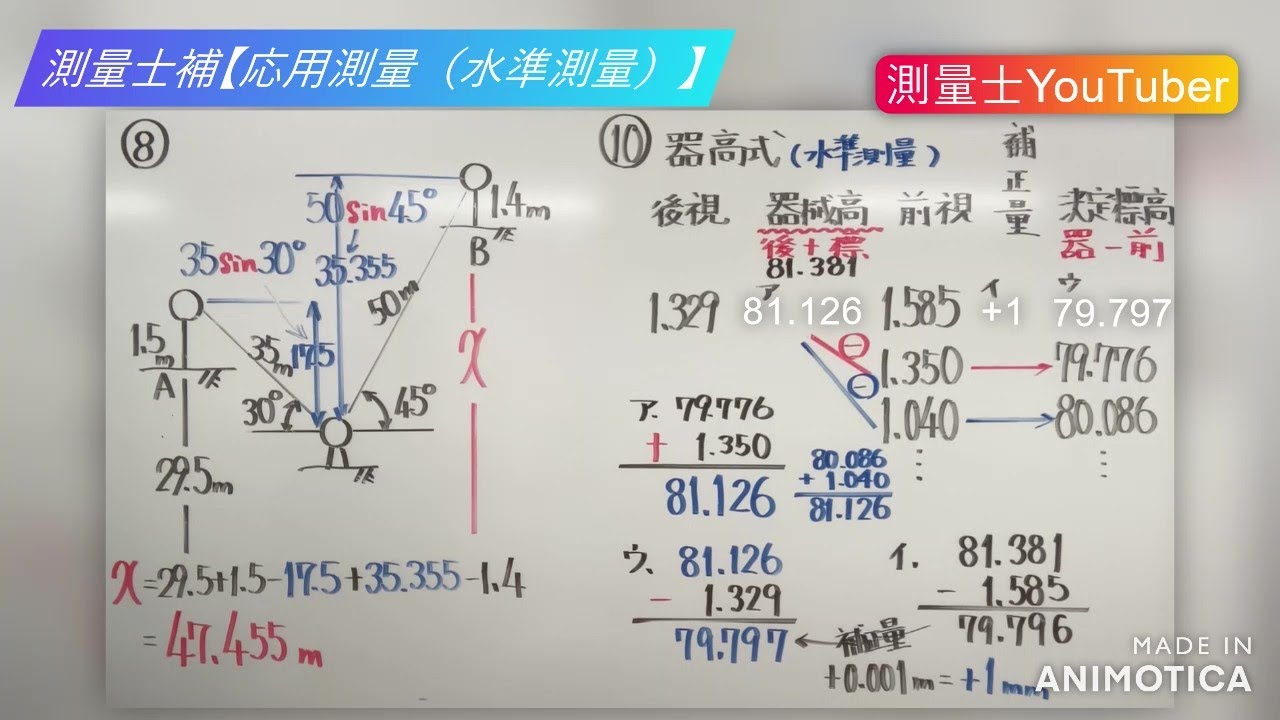 測量士補【応用測量（水準測量）】
測量士YouTuber
⑧
50sin45°
1.4m
B
35sin30°
35.355
50m
1.5m
A
35m
17.5
x
30°
45°
29.5m
x=29.5+1.5-17.5+35.355-1.4
=47.455m
⑩ 器高式(水準測量)
後視 器械高 前視 補正量 決定標高
後+標 器-前
81.381
ア イ ウ
1.329 81.126 1.585 +1 79.797
⊖ 1.350 → 79.776
⊖ 1.040 → 80.086
⋮ ⋮
ア. 79.776
+ 1.350
81.126
80.086
+ 1.040
81.126
ウ、 81.126
- 1.329
79.797
イ. 81.381
- 1.585
79.796
← 補正量
+0.001m=+1mm
MADE IN
ANIMOTICA